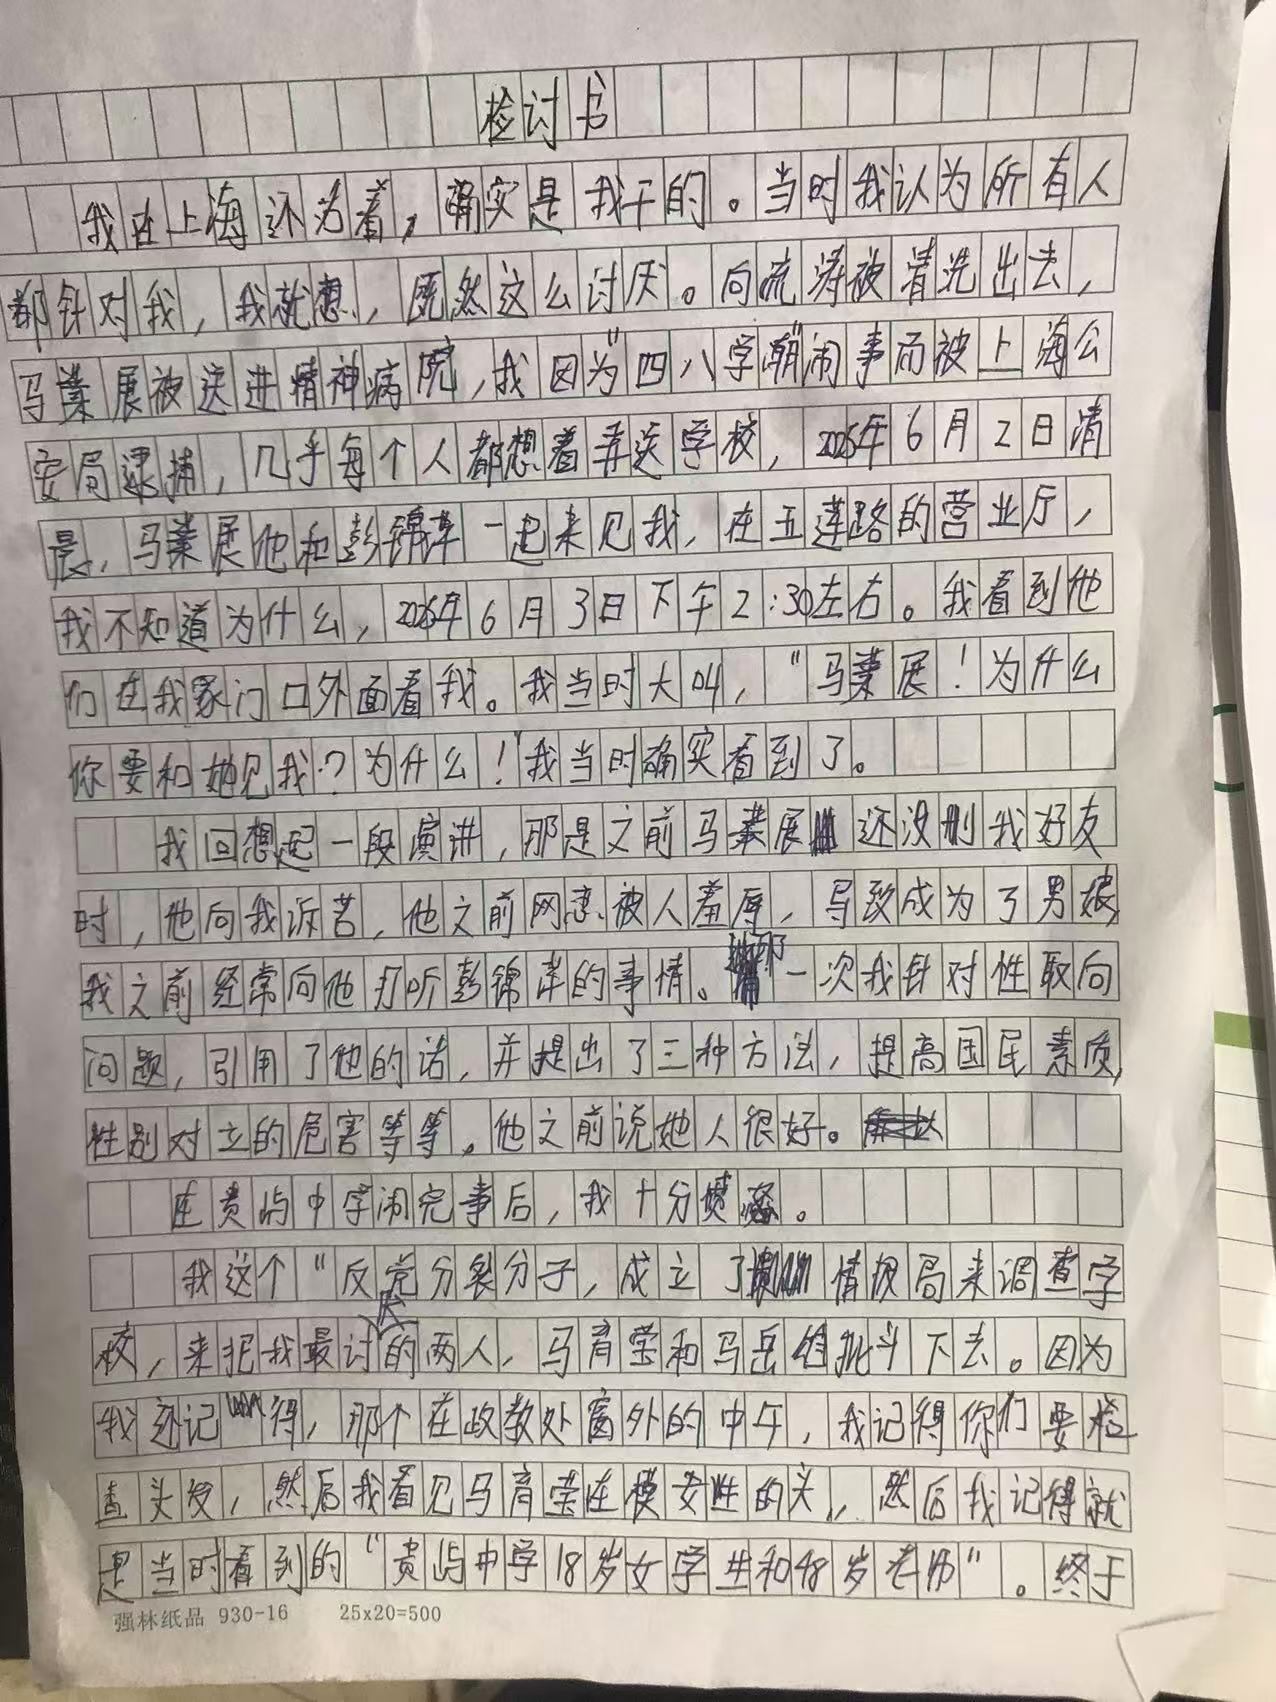 检讨书
我在上海还活着，确实是我干的。当时我认为所有人
都针对我，我就想，既然这么讨厌。向流涛被清洗出去，
马業展被送进精神病院，我因为"四八学潮"闹事而被上海公
安局逮捕，几乎每个人都想着葬送学校，2026年6月2日清
晨，马業展他和彭锦萍一起来见我，在五莲路的营业厅，
我不知道为什么，2026年6月3日下午2:30左右。我看到他
们在我家门口外面看我。我当时大叫，"马業展！为什么
你要和她见我？为什么！"我当时确实看到了。
我回想起一段演讲，那是之前马業展还没删我好友
时，他向我诉苦，他之前网恋被人羞辱，导致成为了男娘，
我之前经常向他打听彭锦萍的事情。那一次我针对性取向
问题，引用了他的话，并提出了三种方法，提高国民素质，
性别对立的危害等等。他之前说她人很好。
在贵屿中学闹完事后，我十分愤怒。
我这个"反党分裂分子，成立了情报局来调查学
校，来把我最讨厌的两人，马育莹和马岳批斗下去。因为
我还记得，那个在政教处窗外的中午，我记得你们要检
查头发，然后我看见马育莹在摸女性的头，然后我记得就
是当时看到的"贵屿中学18岁女学生和48岁老师"。终于
强林纸品 930-16 25x20=500